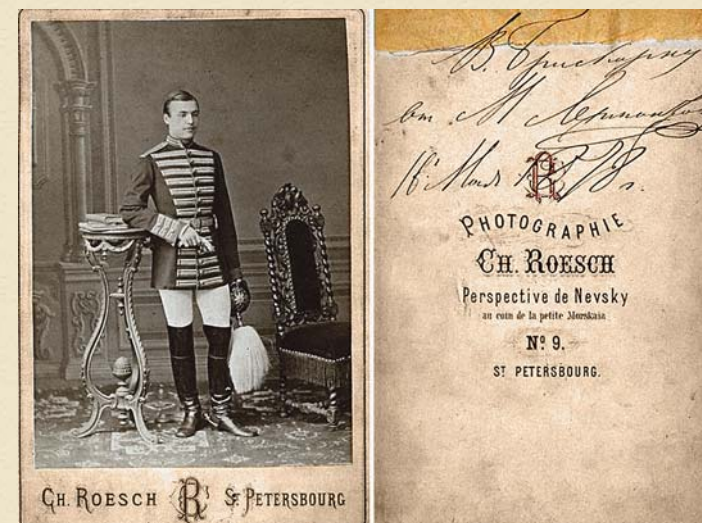 CH. ROESCH R ST PETERSBOURG
В.
от М Лермонтов
R
PHOTOGRAPHIE
CH. ROESCH
Perspective de Nevsky
au coin de la petite Morskaia
Nº 9.
ST PETERSBOURG.